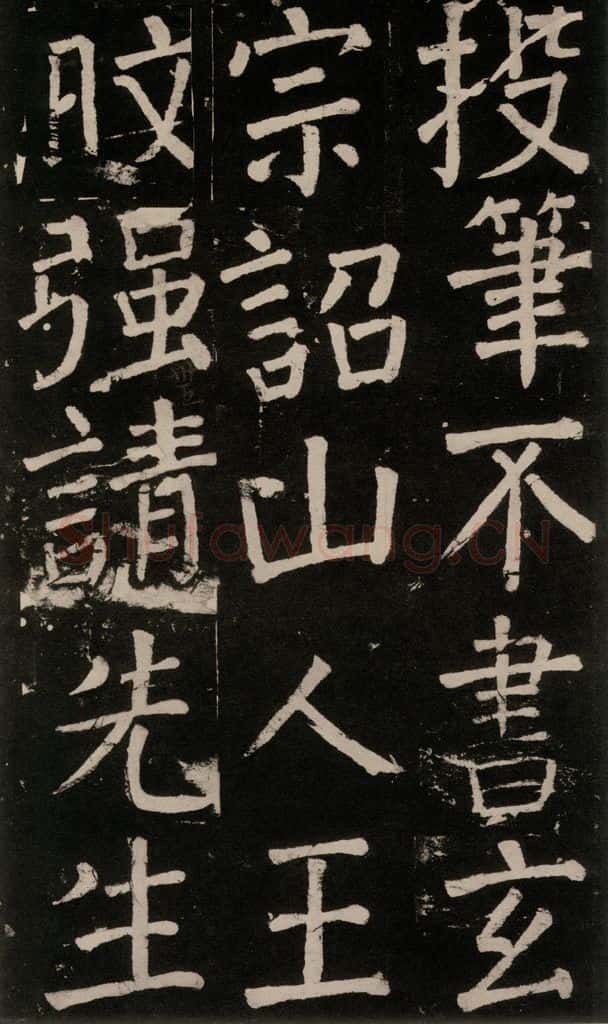 投筆不書玄
宗詔山人王
旼强請先生
Shufawang.CN